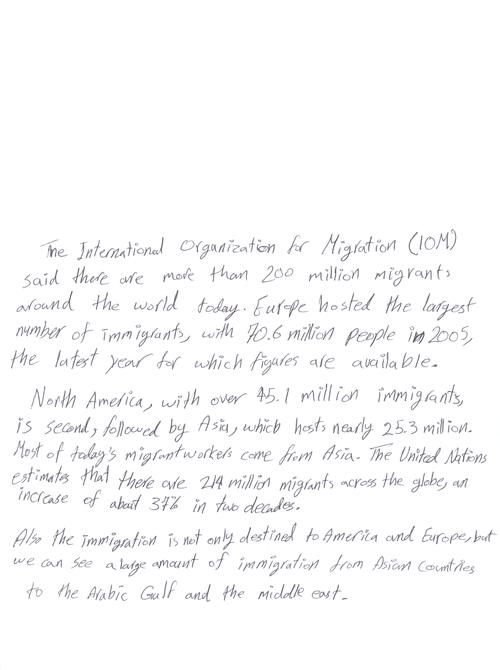 The International Organization for Migration (IOM)
said there are more than 200 million migrants
around the world today. Europe hosted the largest
number of immigrants, with 70.6 million people in 2005,
the latest year for which figures are available.
North America, with over 45.1 million immigrants,
is second, followed by Asia, which hosts nearly 25.3 million.
Most of today's migrant workers come from Asia. The United Nations
estimates that there are 214 million migrants across the globe, an
increase of about 37% in two decades.
Also the immigration is not only destined to America and Europe, but
we can see a large amount of immigration from Asian countries
to the Arabic Gulf and the middle east.